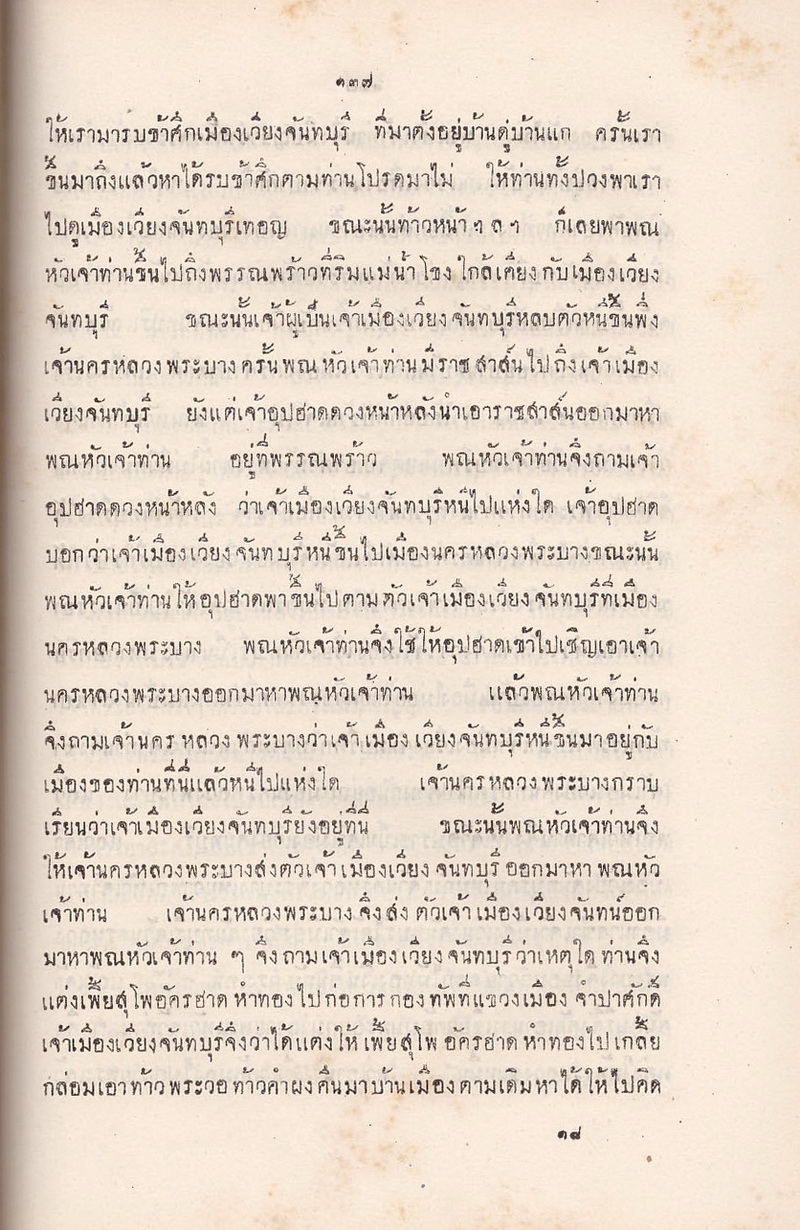 ๑๓๗
ให้เรามารบข้าศึกเมืองเวียงจันทบุรี ที่มาตั้งอยู่บ้านดู่บ้านแก ครั้นเรา
ขึ้นมาถึงแล้วหาได้รบข้าศึกตามท่านโปรดมาไม่ ให้ท่านทั้งปวงพาเรา
ไปดูเมืองเวียงจันทบุรีเทอญ ขณะนั้นท้าวหน้า ๆ ๓ ๆ ก็เลยพาพณ
หัวเจ้าท่านขึ้นไปถึงพรรณพร้าวที่ริมแม่น้ำโขง ใกล้เคียงกับเมืองเวียง
จันทบุรี ขณะนั้นเจ้าผู้เปนเจ้าเมืองเวียงจันทบุรีหลบตัวหนีขึ้นพึ่ง
เจ้านครหลวงพระบาง ครั้นพณหัวเจ้าท่านมีราชสาส์นไปถึงเจ้าเมือง
เวียงจันทบุรี ยังแต่เจ้าอุปฮาดดวงหน้าหลังนำเอาราชสาส์นออกมาหา
พณหัวเจ้าท่าน อยู่ที่พรรณพร้าว พณหัวเจ้าท่านจึงถามเจ้า
อุปฮาดดวงหน้าหลัง ว่าเจ้าเมืองเวียงจันทบุรีหนีไปแห่งใด เจ้าอุปฮาด
บอกว่าเจ้าเมืองเวียงจันทบุรีหนีขึ้นไปเมืองนครหลวงพระบางขณะนั้น
พณหัวเจ้าท่านให้อุปฮาดพาขึ้นไปตามตัวเจ้าเมืองเวียงจันทบุรีที่เมือง
นครหลวงพระบาง พณหัวเจ้าท่านจึงใช้ให้อุปฮาดเข้าไปเชิญเอาเจ้า
นครหลวงพระบางออกมาหาพณหัวเจ้าท่าน แล้วพณหัวเจ้าท่าน
จึงถามเจ้านครหลวงพระบางว่าเจ้าเมืองเวียงจันทบุรีหนีขึ้นมาอยู่กับ
เมืองของท่านที่นี่แล้วหนีไปแห่งใด เจ้านครหลวงพระบางกราบ
เรียนว่าเจ้าเมืองเวียงจันทบุรียังอยู่ที่นี่ ขณะนั้นพณหัวเจ้าท่านจึง
ให้เจ้านครหลวงพระบางส่งตัวเจ้าเมืองเวียงจันทบุรีออกมาหาพณหัว
เจ้าท่าน เจ้านครหลวงพระบางจึงส่งตัวเจ้าเมืองเวียงจันทน์ออก
มาหาพณหัวเจ้าท่าน ๆ จึงถามเจ้าเมืองเวียงจันทบุรีว่าเหตุใดท่านจึง
แต่งเพี้ยสุโพอัครฮาดหำทองไปก่อการกองทัพที่แขวงเมืองจำปาศักดิ์
เจ้าเมืองเวียงจันทบุรีจึงว่าได้แต่งให้เพี้ยสุโพอัครฮาดหำทองไปเกลี้ย
กล่อมเอาท้าวพระวอท้าวคำผงคืนมาบ้านเมืองตามเดิมหาได้ให้ไปคิด
๑๘